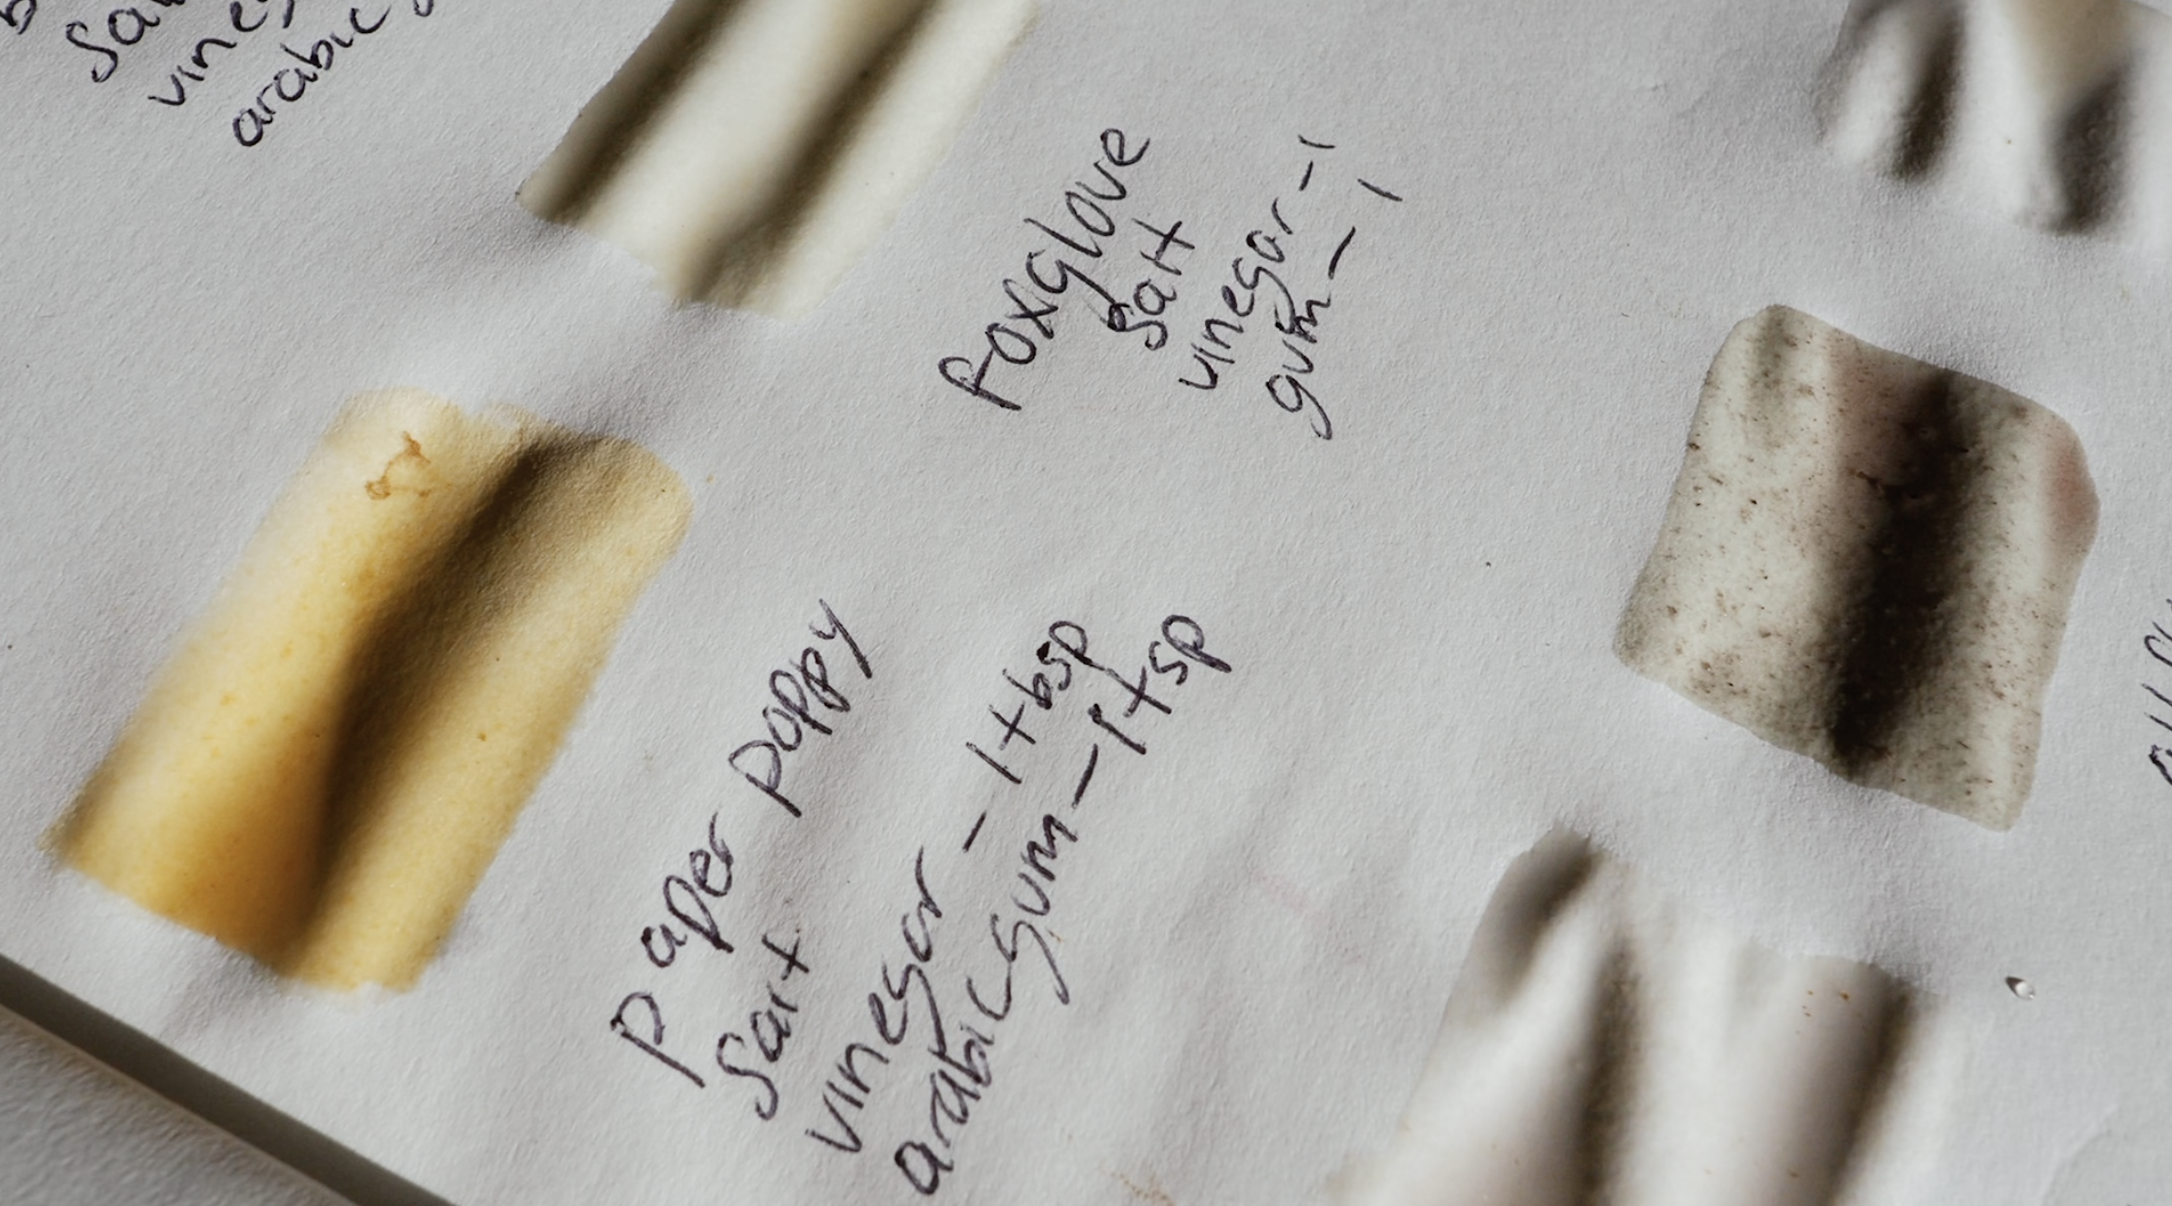 Sal
vine
arabic
Foxglove
Salt
vinegar - 1
gum - 1
Paper poppy
Salt
vinegar - 1 tbsp
arabic gum - 1 tsp